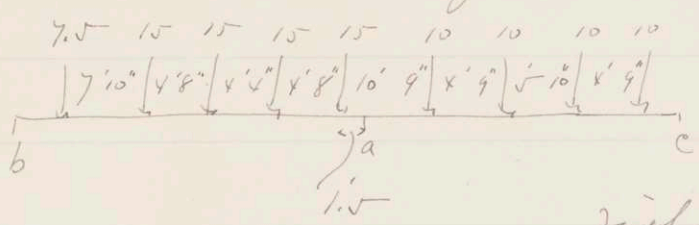 7.5 15 15 15 15 10 10 10 10
7'10" 4'8" 4'4" 4'8" 10' 9" 4' 9" 5' 10" 4' 9"
b a c
1.5'